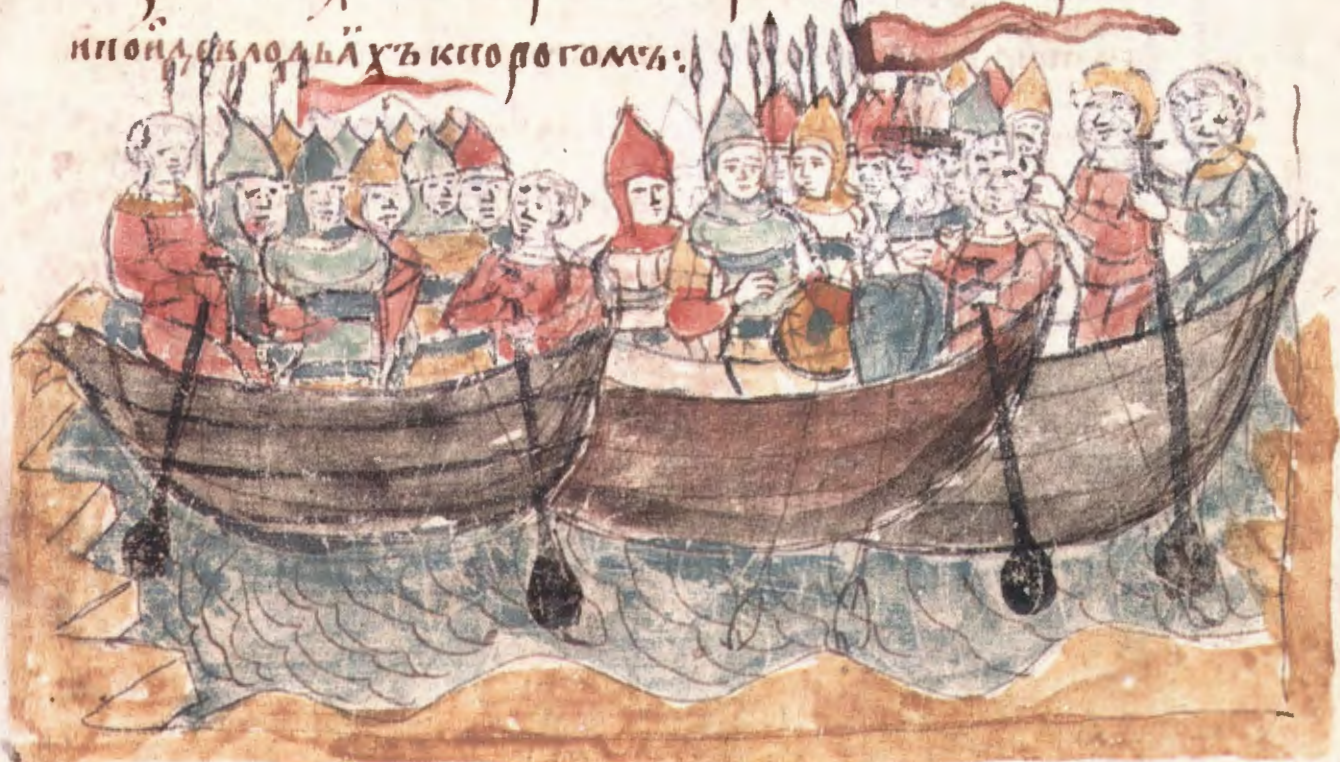 и пои́де в лодьѧхъ к порогомъ: